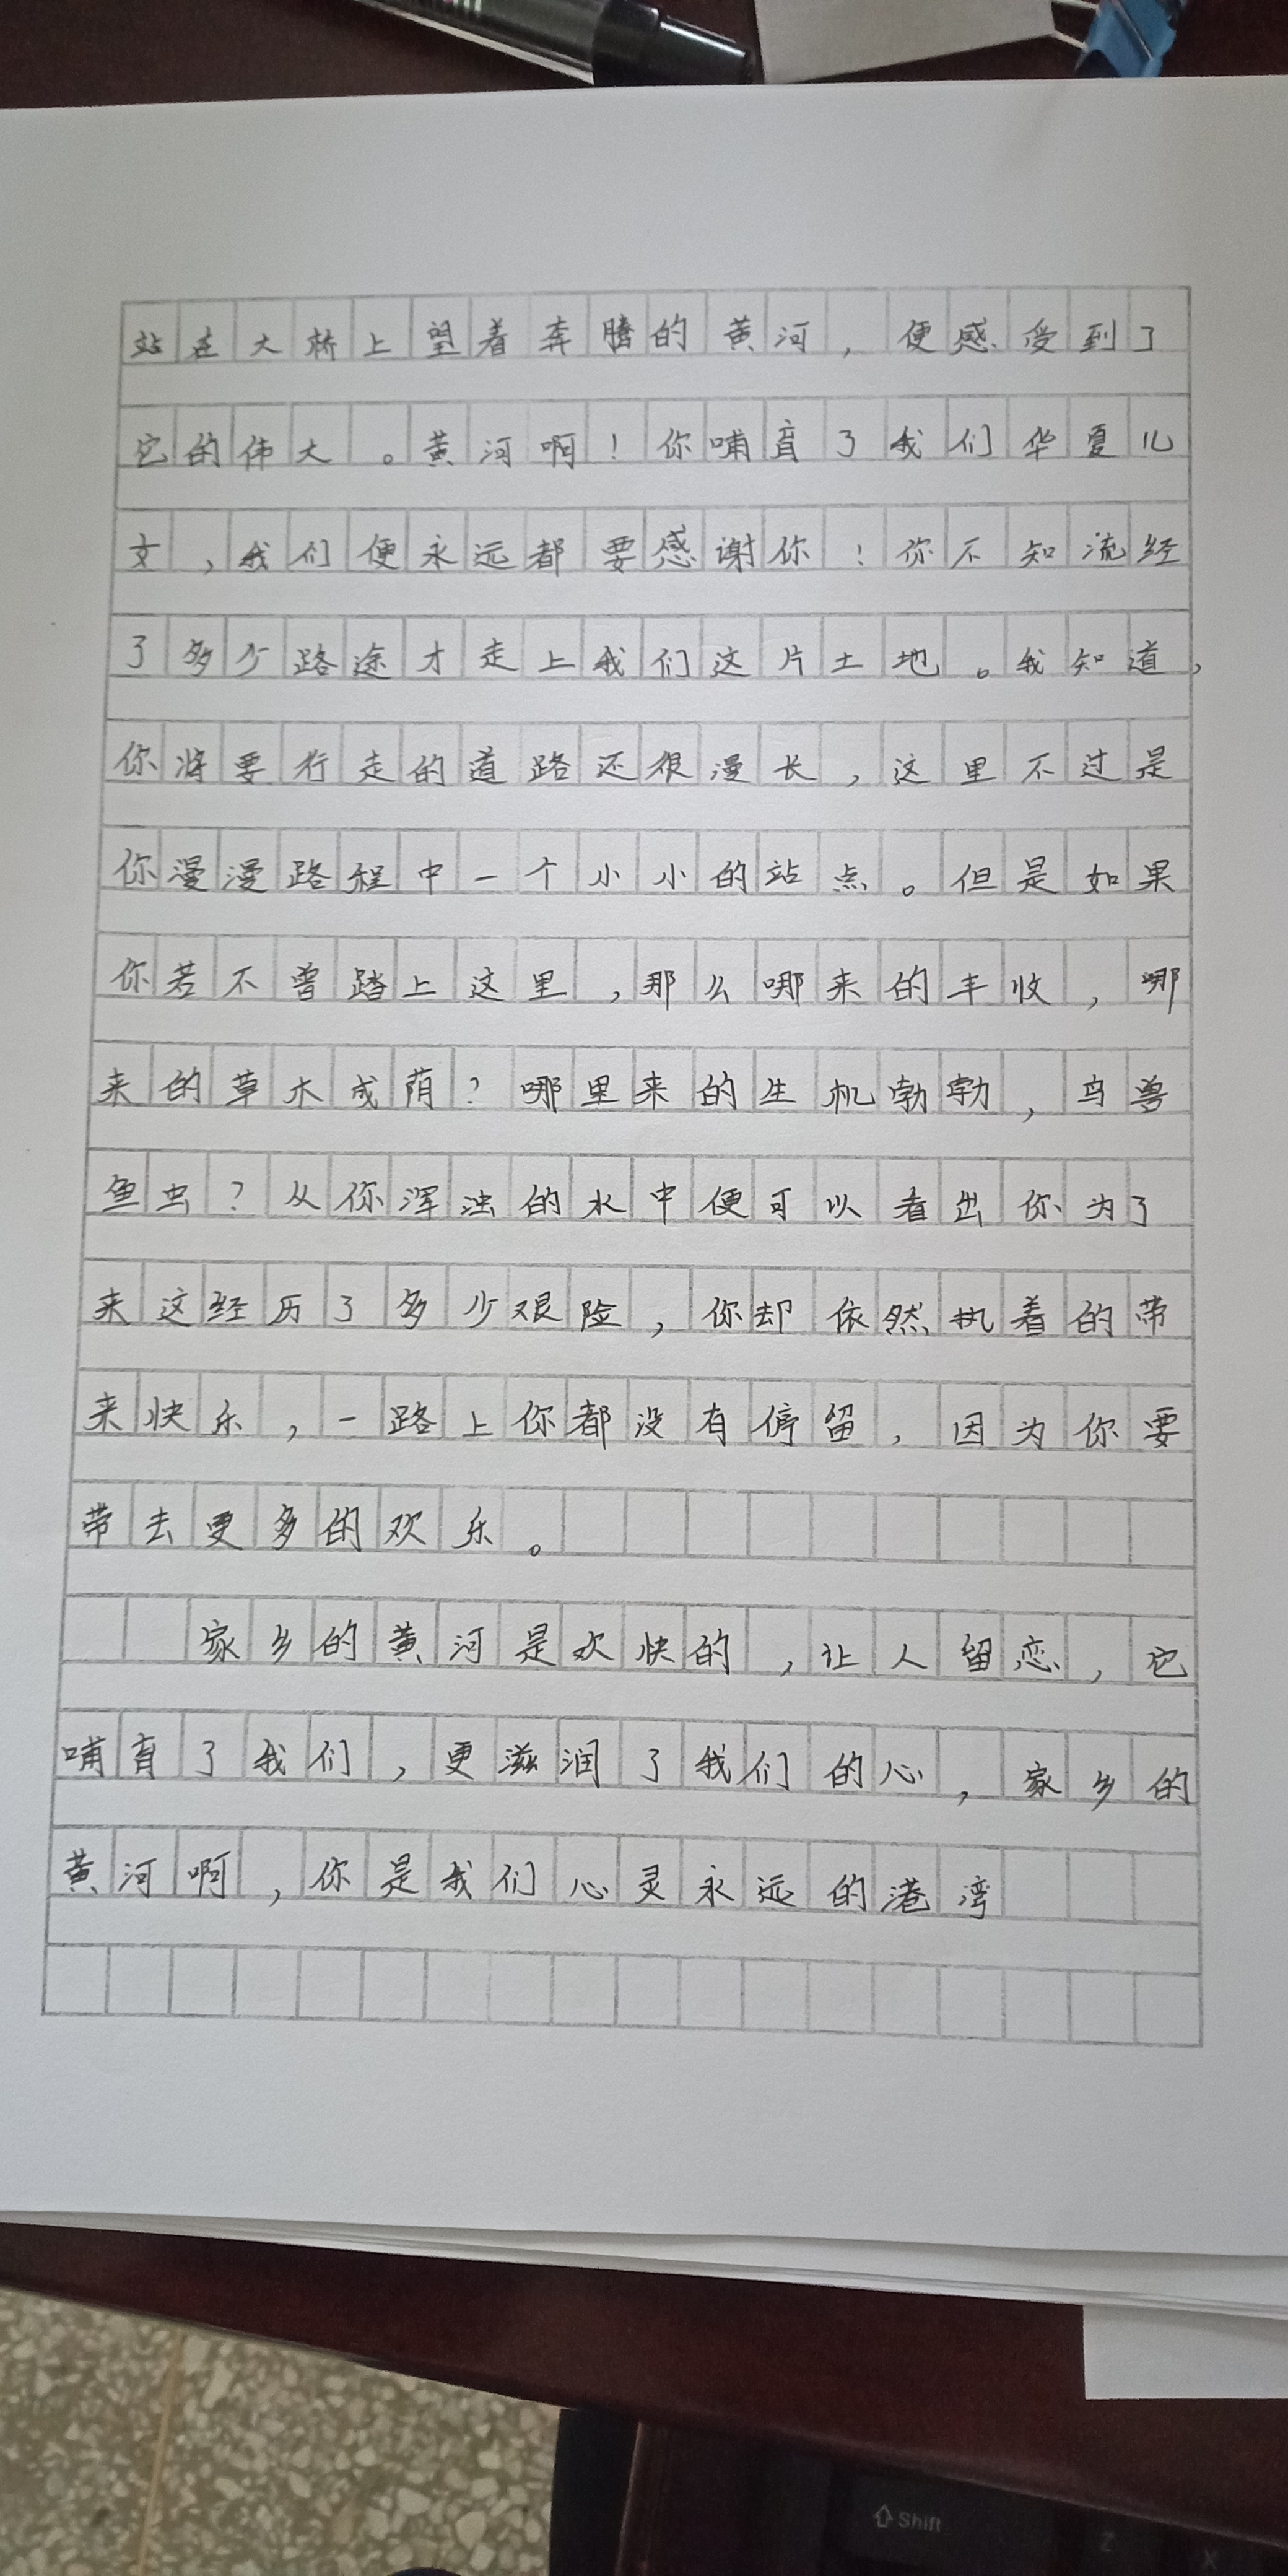 站在大桥上望着奔腾的黄河，便感受到了
它的伟大。黄河啊！你哺育了我们华夏儿
女，我们便永远都要感谢你！你不知流经
了多少路途才走上我们这片土地。我知道，
你将要行走的道路还很漫长，这里不过是
你漫漫路程中一个小小的站点。但是如果
你若不曾踏上这里，那么哪来的丰收，哪
来的草木成荫？哪里来的生机勃勃，鸟兽
鱼虫？从你浑浊的水中便可以看出你为了
来这经历了多少艰险，你却依然执着的带
来快乐，一路上你都没有停留，因为你要
带去更多的欢乐。
家乡的黄河是欢快的，让人留恋，它
哺育了我们，更滋润了我们的心，家乡的
黄河啊，你是我们心灵永远的港湾
Shift
Z
X